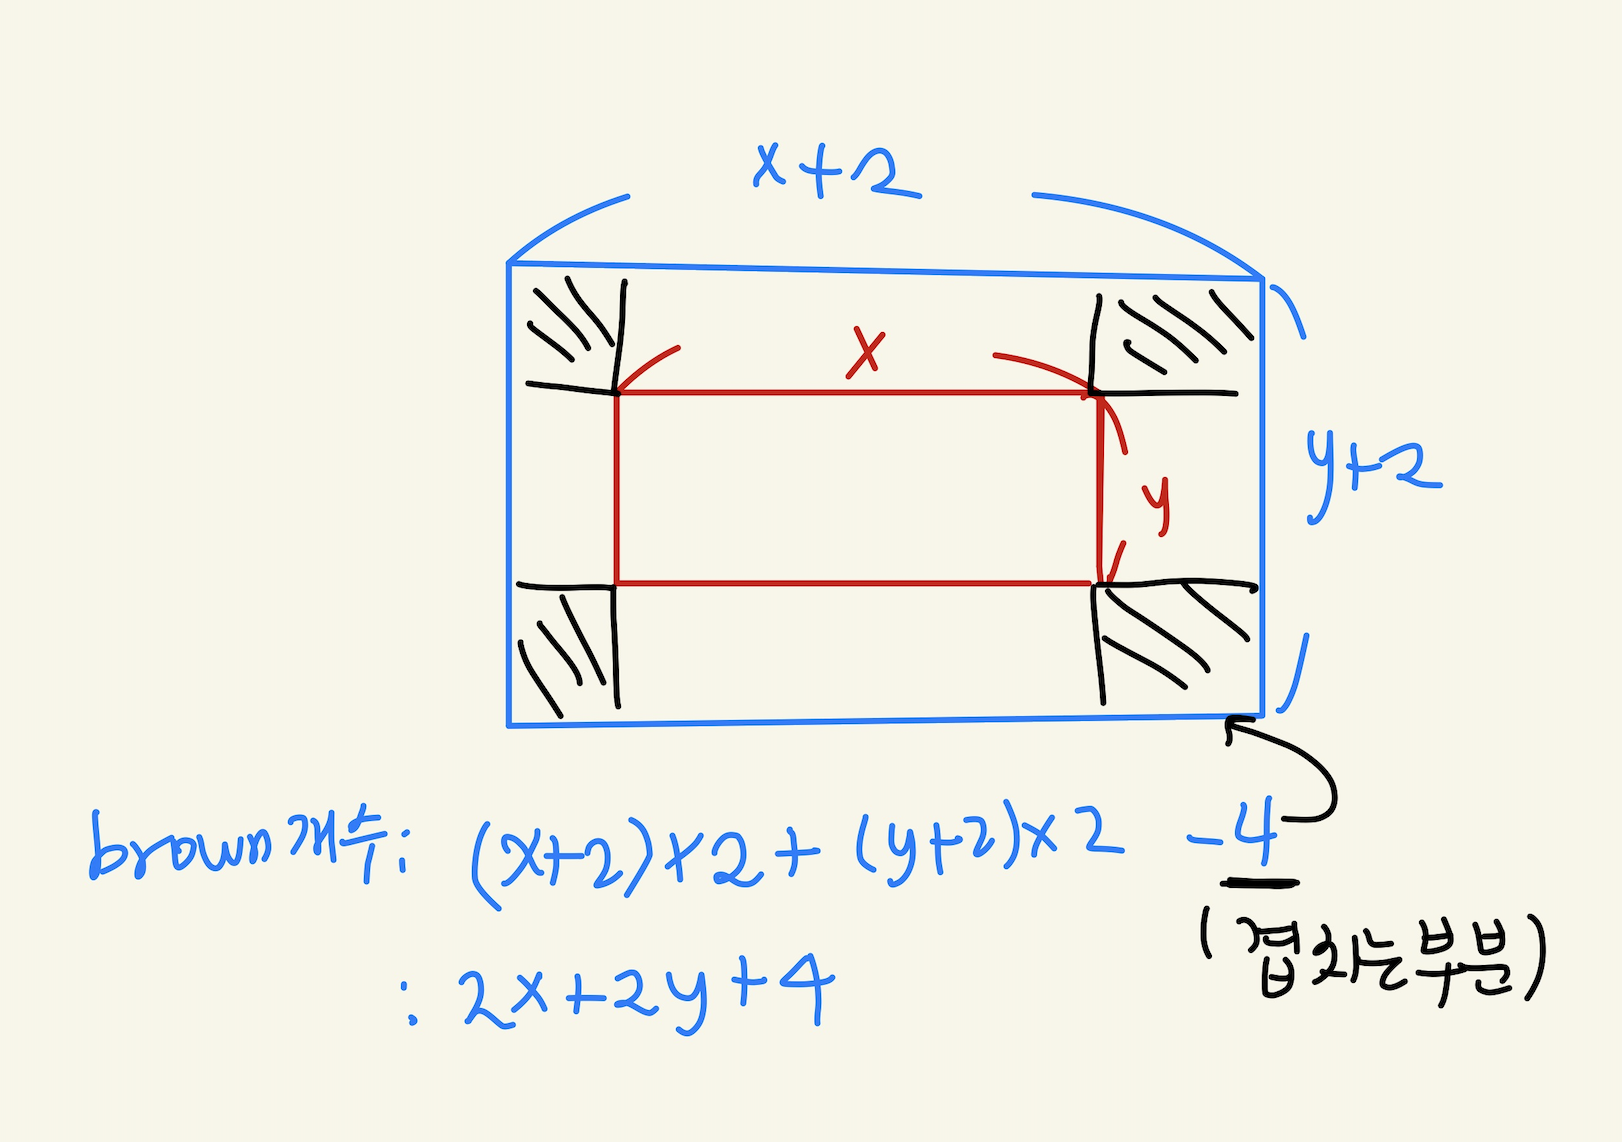 x+2
x
y
y+2
brown 개수: (x+2)×2+(y+2)×2 -4
(겹치는부분)
: 2x+2y+4